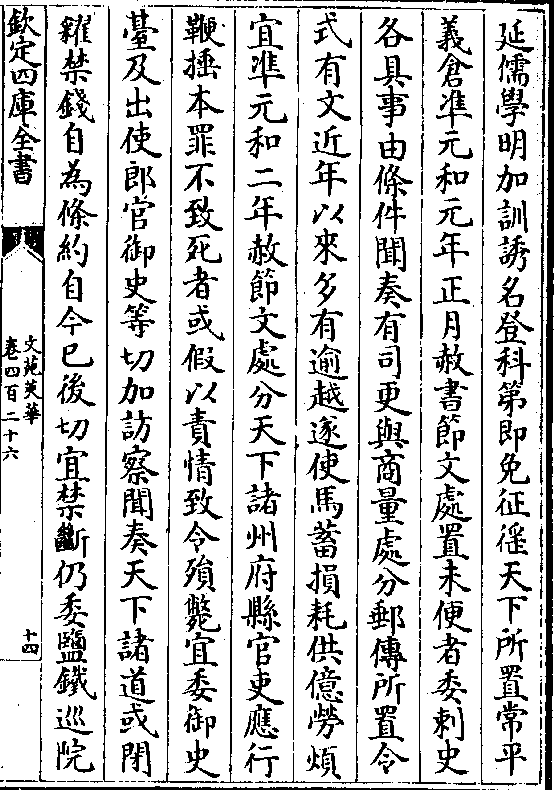 延儒學明加訓誘名登科第即免征徭天下所置常平
義倉準元和元年正月赦書節文處置未便者委刺史
各具事由條件聞奏有司更與商量處分郵傳所置令
式有文近年以來多有逾越遂使馬蓄損耗供億勞煩
宜準元和二年赦節文處分天下諸州府縣官吏應行
鞭捶本罪不致死者或假以責情致令殞斃宜委御史
臺及出使郎官御史等切加訪察聞奏天下諸道或閉
糴禁錢自為條約自今已後切宜禁斷仍委鹽鐵巡院
欽定四庫全書
文苑英華
卷四百二十六
十四